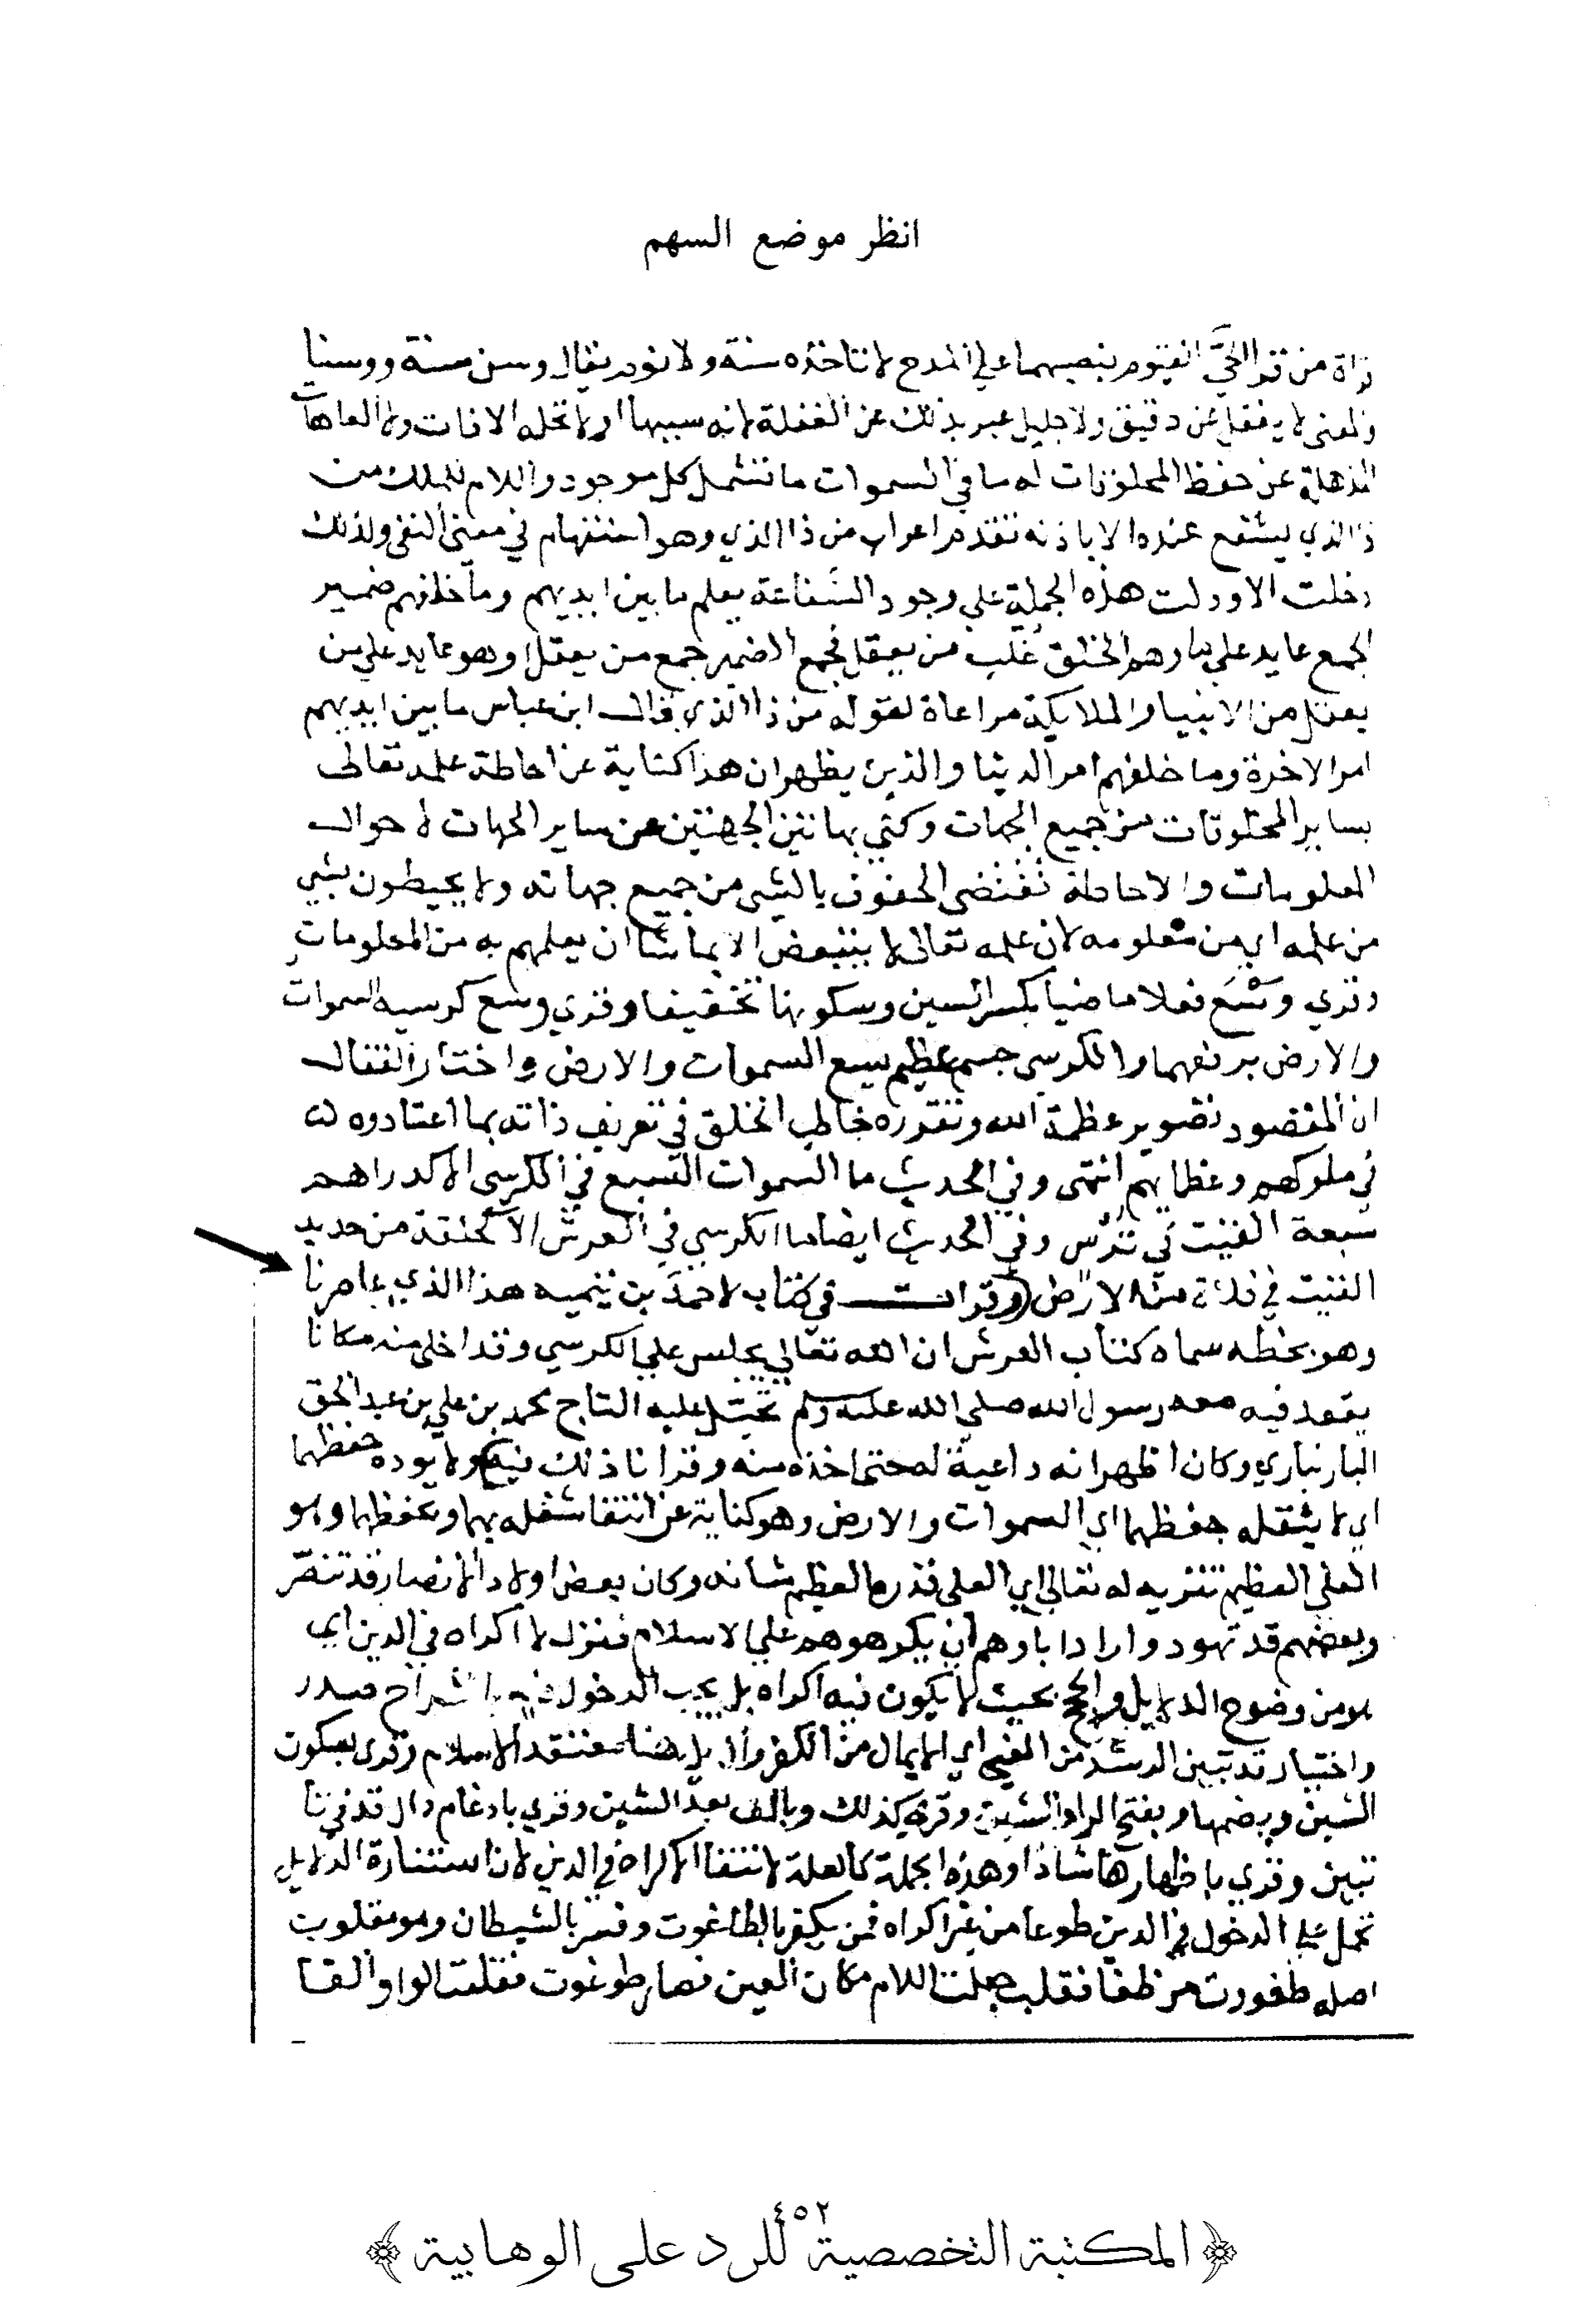 انظر موضع السهم
قراة من قرا الحيَّ القيوم بنصبهما علي المدح لا تاخذه سنة ولا نوم يقال وسن سنة ووسنا
والمعنى لا يغفل عن دقيق ولا جليل عبر بذلك عن الغفلة لانه سببها او لا تحله الافات ولا العاهات
المذهلة عن حفظ المخلوقات له ما في السموات ما تشمل كل موجود واللام للملك من
ذا الذي يشفع عنده الا باذنه تقدم اعراب من ذا الذي وهو استفهام في معنى النفى ولذلك
دخلت الا ودلت هذه الجملة علي وجود الشفاعة يعلم ما بين ايديهم وما خلفهم ضمير
الجمع عايد علي ما وهم الخلق غلب من يعقل فجمع الضمير جمع من يعقل او هو عايد علي من
يعقل من الانبيا والملايكة مراعاة لقوله من ذا الذي قال ابن عباس ما بين ايديهم
امر الاخرة وما خلفهم امر الدنيا والذي يظهر ان هذا كناية عن احاطة علمه تعالى
بساير المخلوقات من جميع الجهات وكني بهاتين الجهتين عن ساير الجهات لاحوال
المعلومات والاحاطة تقتضى الحفوف بالشى من جميع جهاته ولا يحيطون بشي
من علمه اي من معلومه لان علمه تعالى لا يتبعض الا بما شا ان يعلمهم به من المعلومات
وقري وسْع فعلا ماضيا بكسر السين وسكونها تخفيفا وقري وسع كرسيه السموات
والارض برفعهما والكرسي جسم عظيم يسع السموات والارض واختار القفال
ان المقصود تصوير عظمة الله وتقدره خاطب الخلق في تعريف ذاته بما اعتادوه
في ملوكهم وعظمايهم انتهى وفي الحديث ما السموات السبع في الكرسى الا كدراهم
سبعة القيت في تُرْس وفي الحديث ايضا ما الكرسي في العرش الا كحلقة من حديد
القيت في فلاة من الارض وقرات في كتاب لاحمد بن تيميه هذا الذي عاصرنا
وهو بخطه سماه كتاب العرش ان الله تعالي يجلس علي الكرسي وقد اخلى منه مكانا
يقعد فيه معه رسول الله صلي الله عليه وسلم تحيّل عليه التاج محمد بن علي بن عبد الحق
البارنباري وكان اظهر انه داعية له حتى اخذه منه وقرانا ذلك فيه ولا يوده حفظهما
اي لا يثقله حفظهما اي السموات والارض وهو كناية عن انتفا شغله بهما وبحفظهما وهو
العلي العظيم تنزيه له تعالى اي العلي قدره العظيم شانه وكان بعض اولاد الانصار قد تنصّر
وبعضهم قد تهود واراد اباوهم ان يكرهوهم علي الاسلام فنزل لا اكراه في الدين اي
من وضوح الدلايل والحجج بحيث لا يكون فيه اكراه بل يجب الدخول فيه بانشراح صدر
واختيار قد تبين الرشد من الغي اي الايمان من الكفر هنا معتقد الاسلام وقرى بسكون
الشين وبضمها وبفتح الرا والشين وقري كذلك وبالف بعد الشين وقري بادغام دال قد في تا
تبين وقري باظهارها شاذا وهذه الجملة كالعلة لانتفا الاكراه في الدين لان استنارة الدلايل
تحمل علي الدخول في الدين طوعا من غير اكراه فمن يكفر بالطاغوت وفسر بالشيطان وهو مقلوب
اصله طغووت من طغا فقلب جعلت اللام مكان العين فصار طوغوت فقلبت الواو الفا
٤٥٢
﴿المكتبة التخصصية للرد على الوهابية﴾